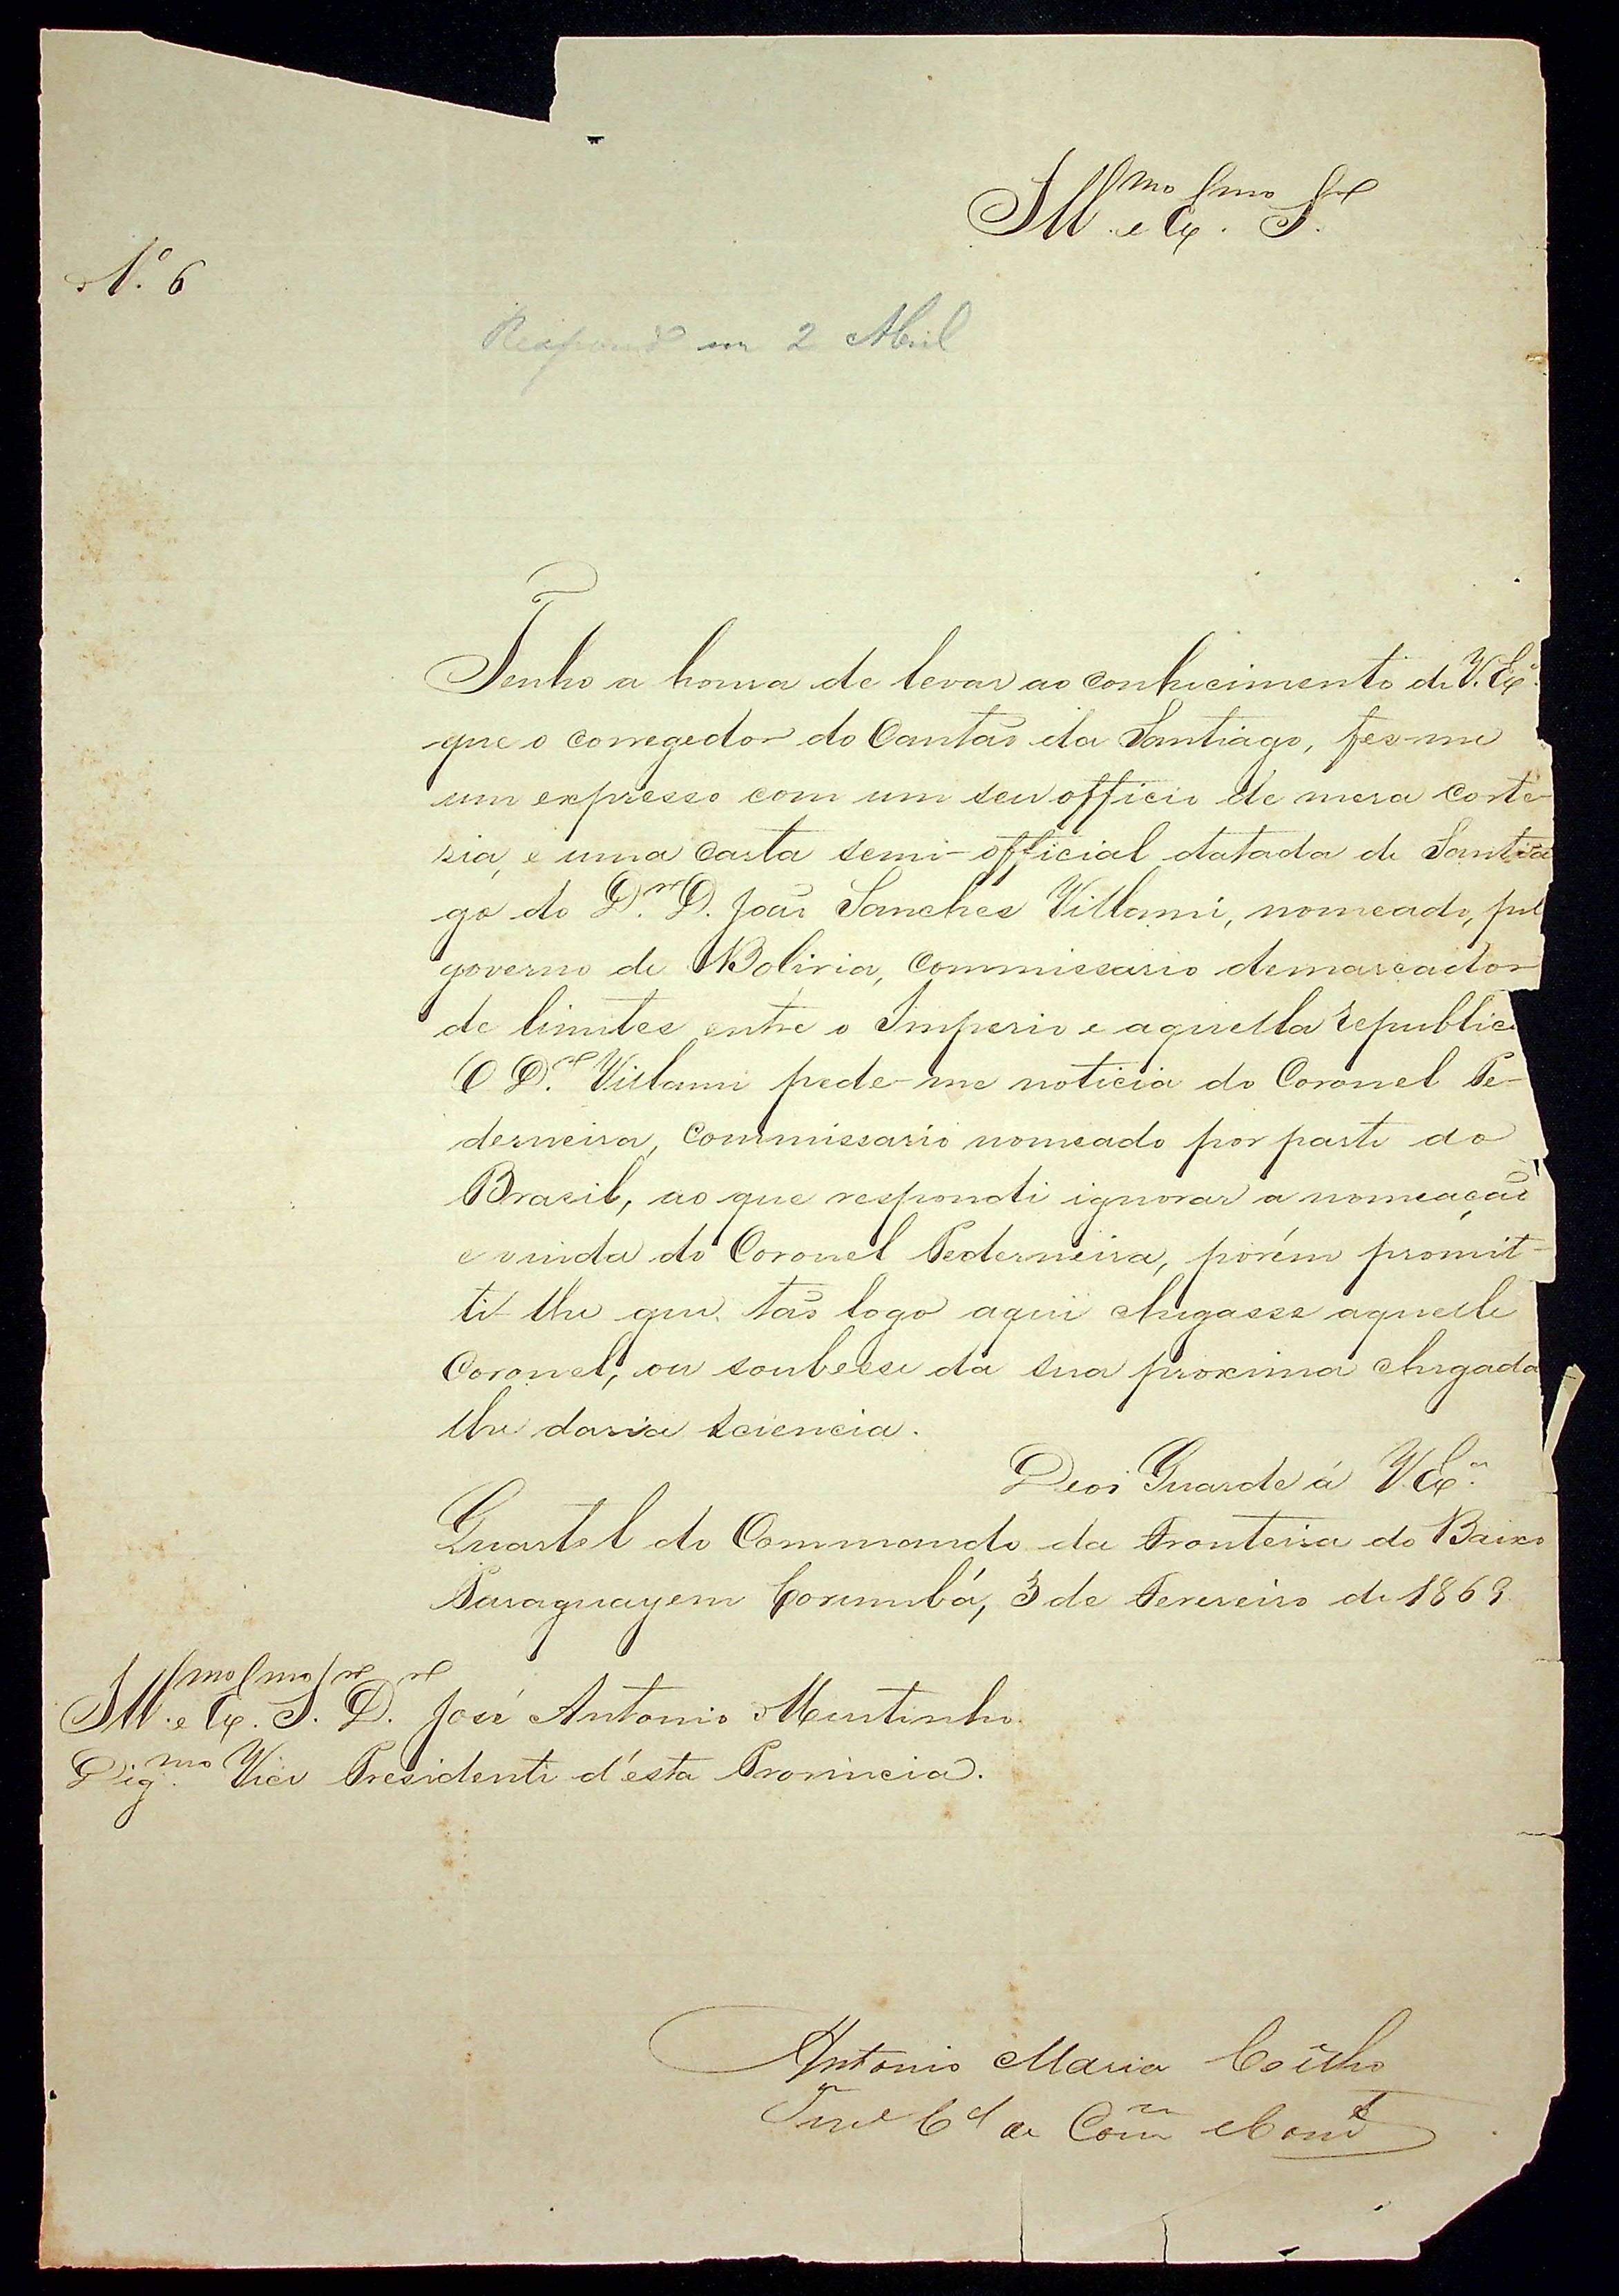 Ill.mo e Ex.mo Sr.
N.o 6
Respond.o em 2 Abril
Tenho a honra de levar ao conhecimento de V. Ex.a
que o corregedor do Cantão da Santiago, fes-me
um expresso com um seu officio de mera corte-
sia, e uma carta semi-official datada de Santia
go do D.r D. João Sanches Villami, nomeado, pel
governo de Bolivia, commissario demarcador
de limites entre o Imperio e aquella republic
O D.r Villami pede-me noticia do Coronel Pe-
derneira, commissario nomeado por parte do
Brasil, ao que respondi ignorar a nomeação
e vinda do Coronel Pederneira, porém promit-
ti-lhe que tão logo aqui chegasse aquelle
Coronel, ou soubesse da sua proxima chegada
lhe daria sciencia.
Deos Guarde á V. Ex.a
Quartel do Commando da Fronteira do Baixo
Paraguay em Corumbá, 3 de Fevereiro de 1869
Ill.mo e Ex.mo Sr. D.r José Antonio Murtinho
Dig.mo Vice Presidente d'esta Provincia.
Antonio Maria Coêlho
Ten.e C.el de Com.m Com.de